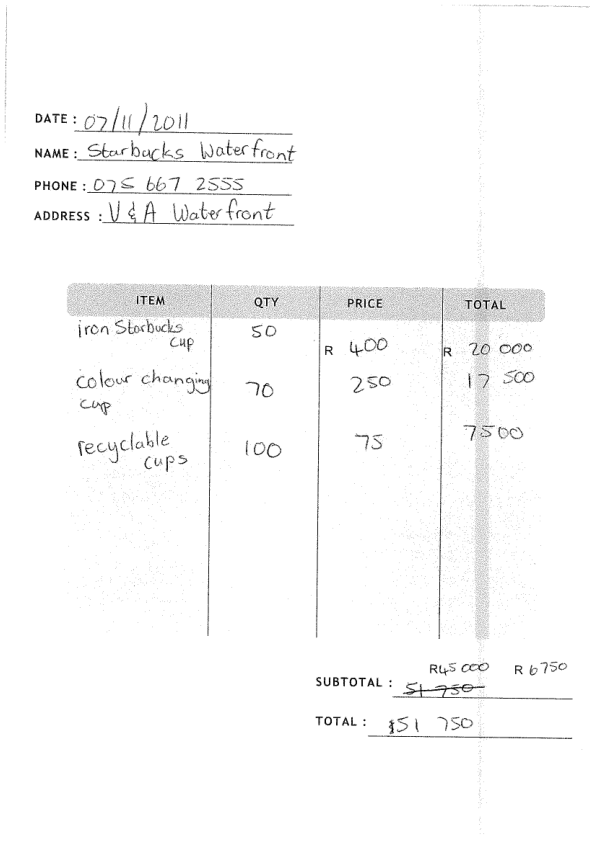 DATE : 07/11/2011
NAME : Starbucks Waterfront
PHONE : 075 667 2555
ADDRESS : V & A Waterfront
ITEM QTY PRICE TOTAL
iron Starbucks 50
cup R 400 R 20 000
colour changing 70 250 17 500
cup
recyclable 100 75 7500
cups
R45 000 R 6750
SUBTOTAL : 51 750
TOTAL : $51 750